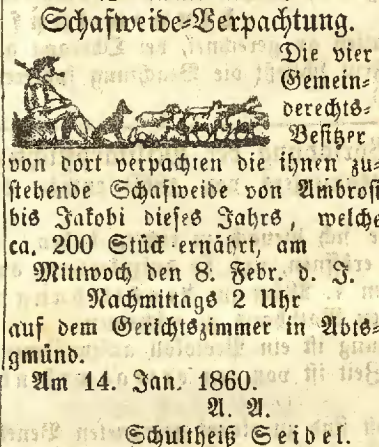 Schafweide-Verpachtung.
Die vier
Gemein-
derechts-
Besitzer
von dort verpachten die ihnen zu-
stehende Schafweide von Ambrosi
bis Jakobi dieses Jahrs, welche
ca. 200 Stück ernährt, am
Mittwoch den 8. Febr. d. J.
Nachmittags 2 Uhr
auf dem Gerichtszimmer in Abts-
gmünd.
Am 14. Jan. 1860.
A. A.
Schultheiß Seidel.